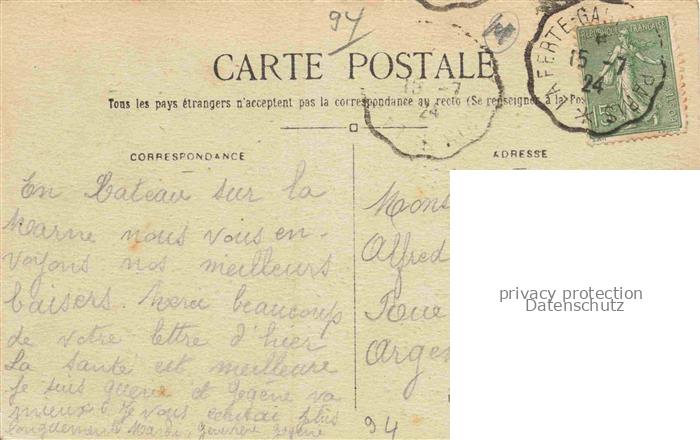 94
CARTE POSTALE
Tous les pays étrangers n'acceptent pas la correspondance au recto (Se renseigner à la Pos
LA FERTE-GA
PARIS
15 -7
24
15 -7
24
REPUBLIQUE FRANÇAISE
15
CORRESPONDANCE
ADRESSE
En Bateau sur la
Marne nous vous en-
voyons nos meilleurs
baisers. Merci beaucoup
de votre lettre d'hier
La santé est meilleure
je suis guérie et Gégène va
mieux Je vous écrirai plus
longuement Mardi, Geneviève Gégène
Mons
Alfred
Rue
Argen
94
privacy protection
Datenschutz